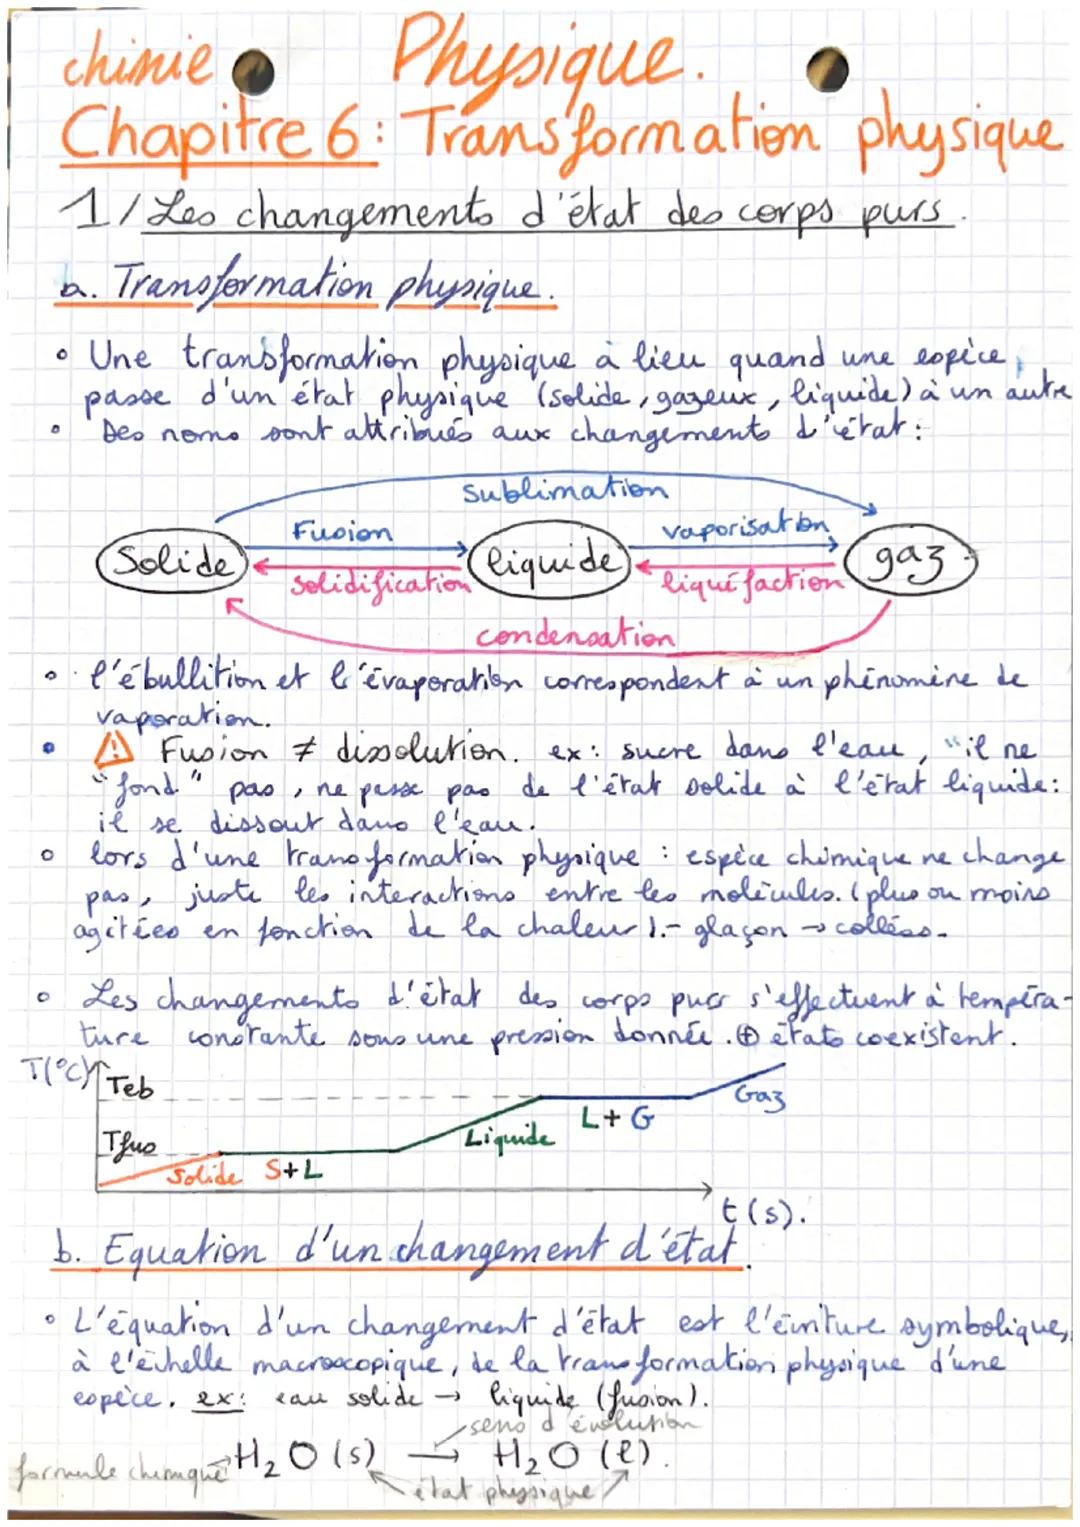 chimie Physique.
Chapitre 6: Transformation physique
1/ Les changements d'état des corps purs.
a. Transformation physique.
• Une transformation physique à lieu quand une espèce,
passe d'un état physique (solide, gazeux, liquide) à un autre
• Des noms sont attribués aux changements d'état:
sublimation
Fusion vaporisation
Solide liquide gaz
solidification liquéfaction
condensation
• l'ébullition et l'évaporation correspondent à un phénomène de
vaporation.
• ⚠ Fusion ≠ dissolution. ex: sucre dans l'eau, "il ne
"fond" pas, ne passe pas de l'état solide à l'état liquide:
il se dissout dans l'eau.
• lors d'une transformation physique : espèce chimique ne change
pas, juste les interactions entre les molécules. (plus ou moins
agitées en fonction de la chaleur).- glaçon → collés.
• Les changements d'état des corps purs s'effectuent à tempéra-
ture constante sous une pression donnée. ⊕ états coexistent.
T(°C) Teb
Gaz
L+G
Tfus Liquide
Solide S+L
t(s).
b. Equation d'un changement d'état.
• L'équation d'un changement d'état est l'écriture symbolique,
à l'échelle macroscopique, de la transformation physique d'une
espèce. ex: eau solide → liquide (fusion).
sens d'évolution
formule chimique → H₂O (s) → H₂O (l).
état physique